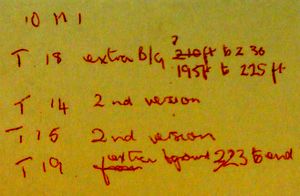 10 M 1
?
T 18 extra B/G 210ft to 230
195ft to 225 ft
T 14 2nd version
T 16 2nd version
T 19 extra bgound 223 to end